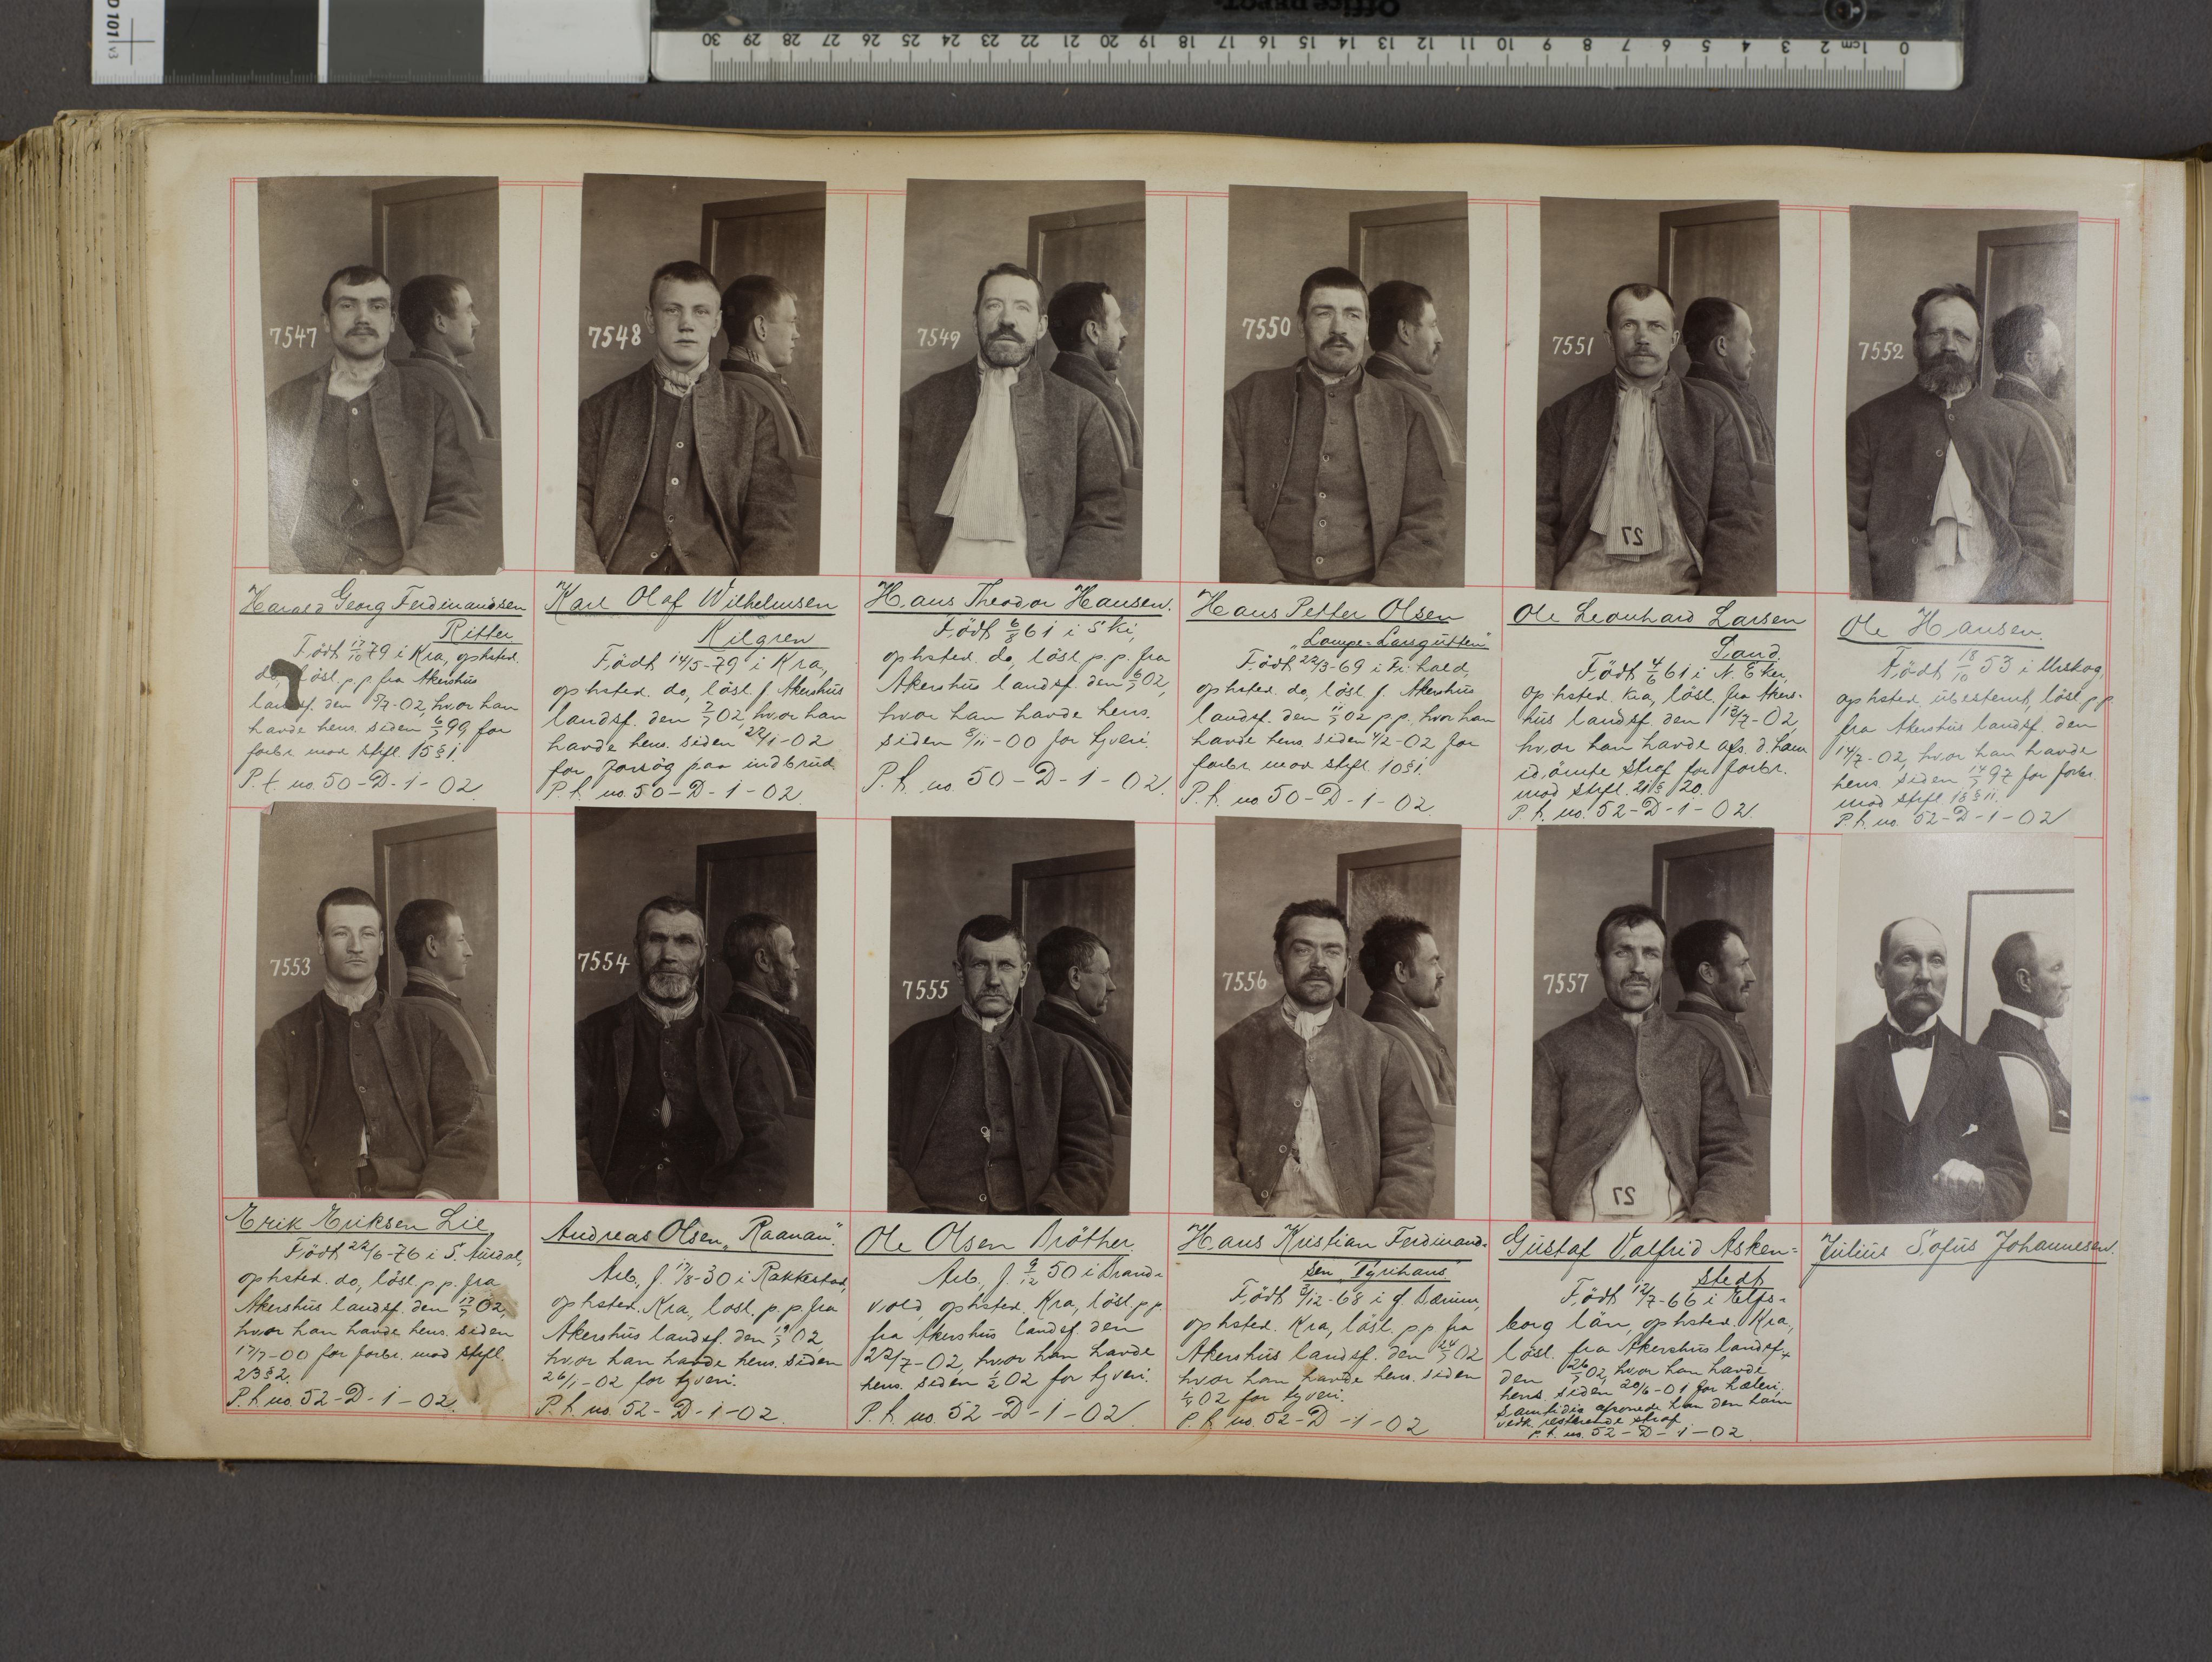 D 101 v3
Office DEPOT
30 29 28 27 26 25 24 23 22 21 20 19 18 17 16 15 14 13 12 11 10 9 8 7 6 5 4 3 2 1cm 0
7547
Harald Georg Ferdinandsen
Ritter
Födt 17/10 79 i Kra, ophsted.
do, lösl. p.p. fra Akershus
landsf. den 5/7-02, hvor han
havde hens. siden 6/7 99 for
forbr. mod strfl. 15 § 1.
P.t. no. 50-D-1-02
7548
Karl Olaf Wilhelmsen
Kilgren
Födt 14/5-79 i Kra,
ophsted. do, lösl. f. Akershus
landsf. den 7/7 02, hvor han
havde hens. siden 22/1-02
for forsög paa indbrud.
P.t. no. 50-D-1-02.
7549
Hans Theodor Hansen.
Födt 6/8 61 i Ski,
ophsted. do, lösl. p.p. fra
Akershus landsf. den 6/7 02,
hvor han havde hens.
siden 8/11-00 for tyveri.
P.t. no. 50-D-1-02.
7550
Hans Petter Olsen
"Lampe-Larsgutten"
Födt 22/3-69 i Fr: hald,
ophsted. do, lösl. f. Akershus
landsf. den 11/7 02 p.p. hvor han
havde hens. siden 4/2-02 for
forbr. mod strfl. 10 § 1.
P.t. no 50-D-1-02.
7551
27
Ole Leonhard Larsen
Sand
Födt 4/6 61 i N. Eker,
ophsted. Kra, lösl. fra Akers-
hus landsf. den 12/7-02,
hvor han havde afs. d. ham
idömte straf for forbr.
mod strfl. 21 § 20.
P.t. no. 52-D-1-02.
7552
Ole Hansen.
Födt 18/10 53 i Urskog,
ophsted. ubestemt, lösl. p.p.
fra Akershus landsf. den
14/7-02, hvor han havde
hens. siden 14/7 97 for forbr.
mod strfl. 18 § 11.
P.t. no. 52-D-1-02
7553
Erik Eriksen Lie,
Födt 22/6-76 i S. Aurdal,
ophsted. do, lösl. p.p. fra
Akershus landsf. den 17/7 02,
hvor han havde hens. siden
17/7-00 for forbr. mod strfl.
23 § 2.
P.t. no. 52-D-1-02.
7554
Andreas Olsen "Raanaa".
Arb., f. 17/8-30 i Rakkestad,
ophsted. Kra., lösl. p.p. fra
Akershus landsf. den 19/7 02,
hvor han havde hens. siden
26/1-02 for tyveri.
P.t. no. 52-D-1-02.
7555
Ole Olsen Bröther.
Arb., f. 9/12 50 i Brand-
vold, ophsted. Kra, lösl. p.p.
fra Akershus landsf. den
22/7-02, hvor han havde
hens. siden 1/2 02 for tyveri.
P.t. no. 52-D-1-02.
7556
Hans Kristian Ferdinand-
sen "Tyrihans"
Födt 3/12-68 i Ø. Bærum,
ophsted. Kra, lösl. p.p. fra
Akershus landsf. den 24/7 02
hvor han havde hens. siden
1/4 02 for tyveri.
P.t. no. 52-D-1-02
7557
27
Gustaf Valfrid Asken-
stedt
Födt 12/7-66 i Elfs-
borg län, ophsted. Kra,
lösl. fra Akershus landsf.
den 26/7 02, hvor han havde
hens. siden 20/6-01 for hæleri,
samtidig afsonede han den ham
vedk. resterende straf.
P.t. no. 52-D-1-02.
Julius Sofus Johannesen.